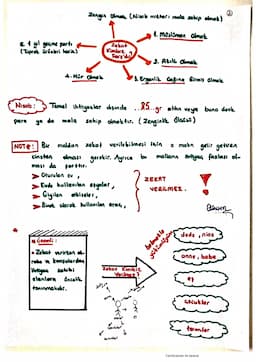 Zengin Olmak (Nisab miktarı mala sahip olmak)
2
5. 1 yıl geçme şartı
(Toprak ürünleri hariç)
Zekat Kimlere Farzdır?
1. Müslüman Olmak
2. Akıllı Olmak
3. Ergenlik Çağına Girmiş Olmak
4. Hür Olmak
Nisab: Temel ihtiyaçlar dışında ..85.. gr altın veya buna denk
para ya da mala sahip olmaktır. (Zenginlik Ölçüsü)
NOT: Bir maldan zekat verilebilmesi için o malın gelir getiren
cinsten olması gerekir. Ayrıca bu malların ihtiyaç fazlası olma-
sı da şarttır.
Oturulan ev,
Evde kullanılan eşyalar,
binek olarak kullanılan araç,
ZEKAT
VERİLMEZ.
Önemli:
Zekat verirken
akraba ve komşulardan
ihtiyaç sahibi
olanlara öncelik
tanınmalıdır.
Zekat Kimlere
Verilmez?
dede, nine
anne, baba
eş
çocuklar
torunlar